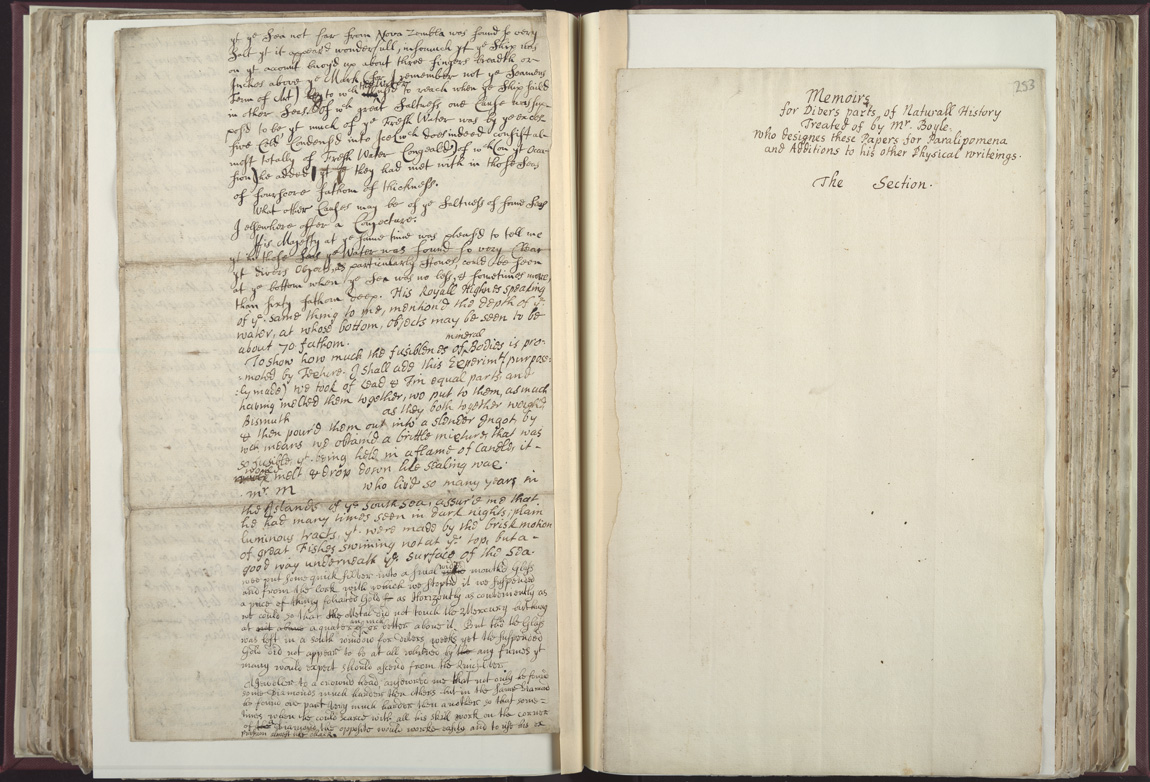 yt ye Sea not far from Nova Zembla was found so very
Salt yt it appeard wonderfull, insomuch yt ye Ship was
on yt account buoyd up about three fingers breadth or
Inches above ye Mark (for I remember not ye Seamens
Term of Art) to wch to reach when ye Ship saild
in other Seas. Of wch great Saltness one Cause was sup-
posd to be yt much of ye Fresh Water was by ye exces-
sive Cold Condensd into Ice (wch does indeed consist al-
most totally of Fresh Water Congealed) of wch (on yt occa-
sion) he added yt they had met with in those Seas
of fourscore fathom of thickness.
What other Causes may be of ye Saltness of some Seas
I elsewhere offer a Conjecture.
His Majesty at ye same time was pleasd to tell me
yt in these Seas ye Water was found so very Clear
yt divers Objects particularly Stones, could be seen
at ye bottom when ye Sea was no less, & sometimes more,
than sixty fathom deep. His Royall Highnes speaking
of ye. same thing to me, mention'd the depth of ye.
water, at whose bottom, objects may be seen to be
about 70 fathom.
mineral
To show how much the fusiblenes of Bodies is pro-
-moted by Texture. I shall add this Experimt. purpose-
-ly made) we took of Lead & Tin equal parts and
having melted them together, wo put to them, as much
Bismuth as they both together weigh'd
& then pour'd them out into a slender Ingot, by
wch means we obtaind a brittle mixture that was
so fusible, yt. being held in a flame of Candle, it -
would melt & drop down like Sealing wax.
Mr. M who liv'd so many years in
the Islands of ye South Sea, assur'd me that
he had many times seen in dark nights, plain
luminous tracts, yt. were made by the brisk motion
of great Fishes swiming not at ye top, but a -
good way underneath ye surface of the Sea.
we put some quick silver into a small wide mouthd Glass
and from the Cork with which we stopted it we suspended
a piece of thinly foliated Gold as Horizontly as conveniently as
we could, so that the Metal did not touch the Mercury but hung
at a quater of an inch or better above it. But tho the Glass
was left in a south window for divers weeks yet the suspended
Gold did not appear to be at all whitend by any fumes yt
many would expect should ascend from the Quicksilver.
A Jeweler to a crownd head, answered me that not only he found
some Diamonds much harder then others but in the same Diamond
he found one part very much harder then another so that some=
times when he could scarce with all his skill work on the corner
of Diamond, the opposite would worke easily and to use his ex
253
Memoirs
for Divers parts of Naturall History
Treated of by Mr. Boyle.
who designes these Papers for Paralipomena
and Additions to his other Physical writeings.
The Section.